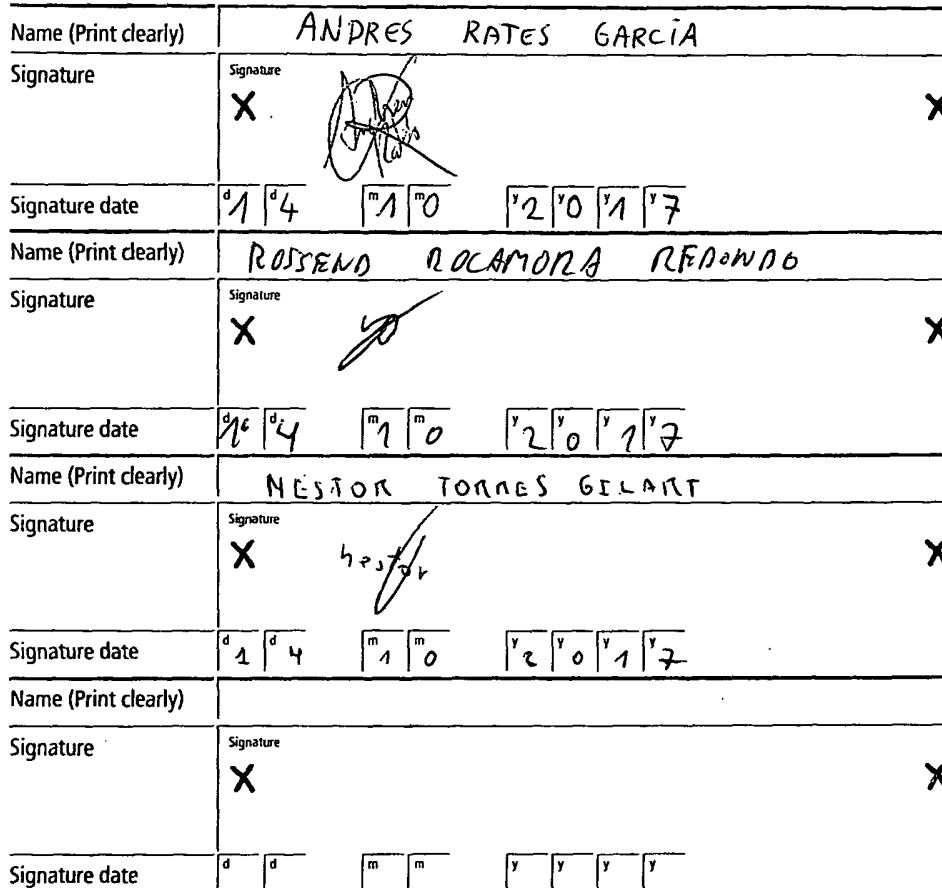 Name (Print clearly) ANDRES RATES GARCÍA
Signature Signature
X X
Signature date d1 d4 m1 m0 y2 y0 y1 y7
Name (Print clearly) ROSSEND ROCAMORA REDONDO
Signature Signature
X X
Signature date d1 d4 m1 m0 y2 y0 y1 y7
Name (Print clearly) NESTOR TORRES GILART
Signature Signature
X nestor X
Signature date d1 d4 m1 m0 y2 y0 y1 y7
Name (Print clearly)
Signature Signature
X X
Signature date d d m m y y y y